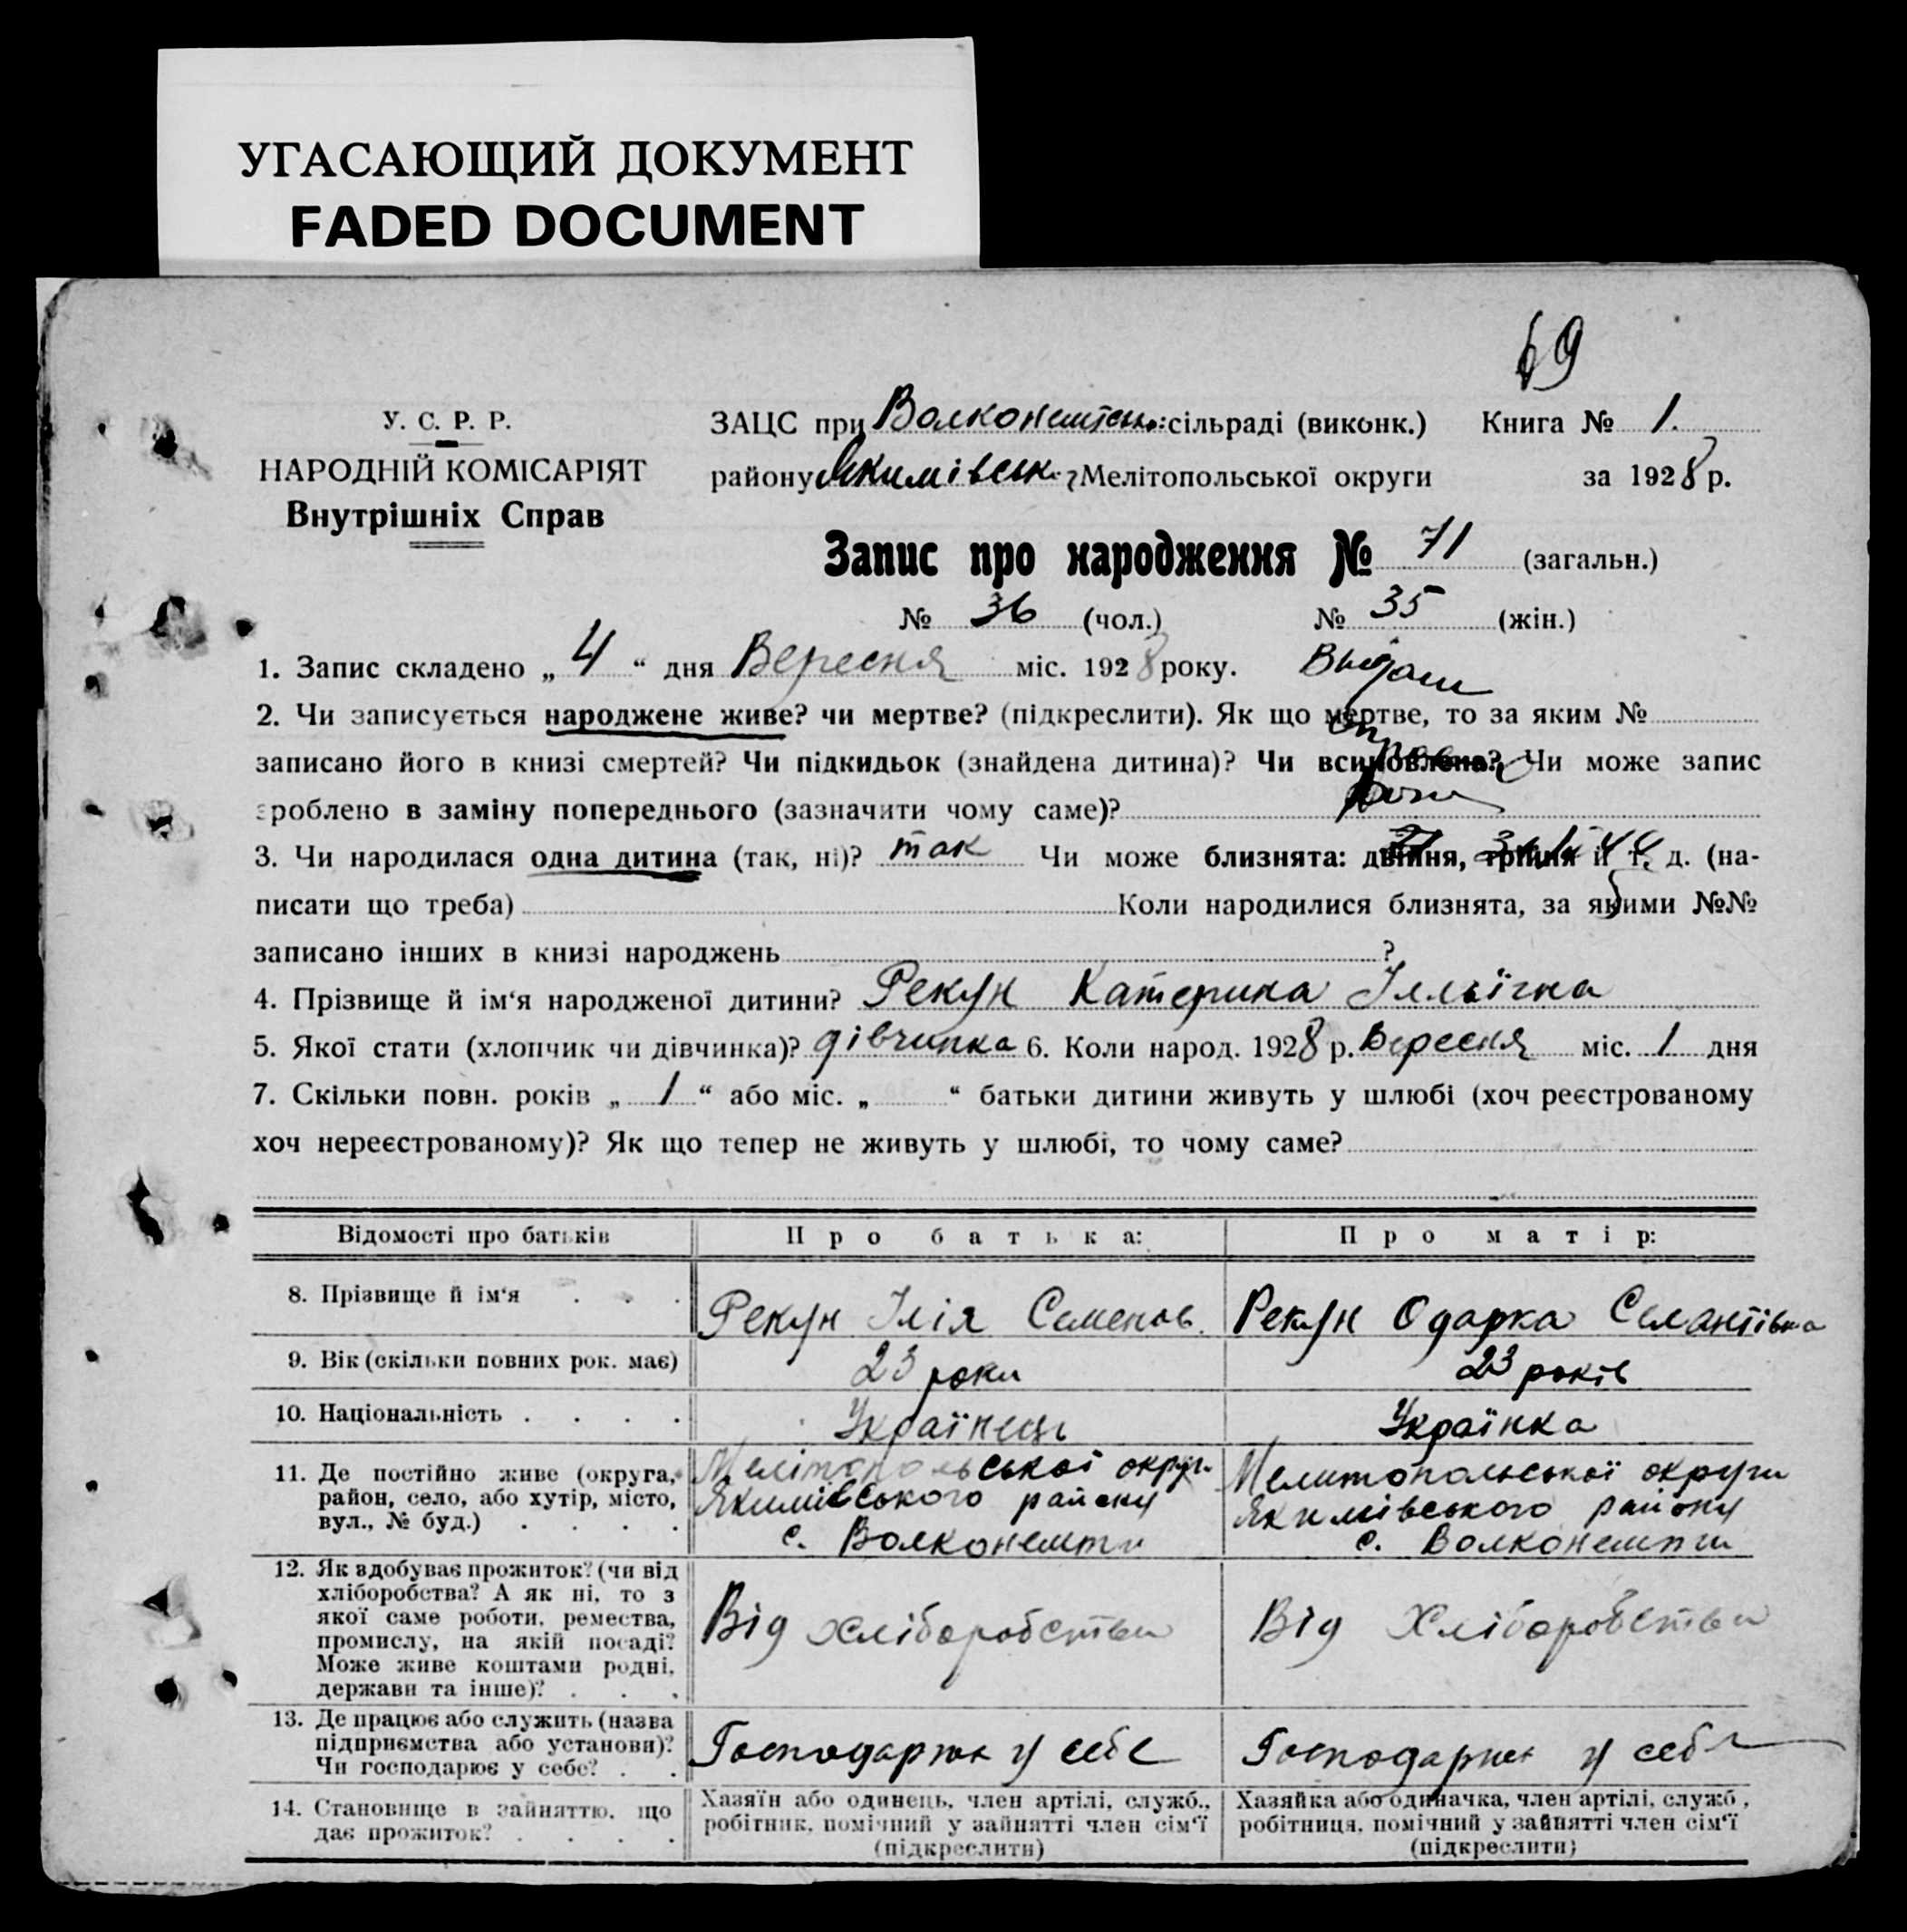 УГАСАЮЩИЙ ДОКУМЕНТ
FADED DOCUMENT
69
У. С. Р. Р.
НАРОДНІЙ КОМІСАРІЯТ
Внутрішніх Справ
ЗАЦС при сільраді (виконк.) Книга № 1.
району Якимівськ. Мелітопольської округи за 1928 р.
Запис про народження № 71 (загальн.)
№ 36 (чол.) № 35 (жін.)
1. Запис складено „ 4 “ дня Вересня міс. 1928 року.
2. Чи записується народжене живе? чи мертве? (підкреслити). Як що мертве, то за яким №
записано його в книзі смертей? Чи підкидьок (знайдена дитина)? Чи всиновлена? Чи може запис
зроблено в заміну попереднього (зазначити чому саме)?
3. Чи народилася одна дитина (так, ні)? так Чи може близнята: двійня, трійня й т. д. (на-
писати що треба) Коли народилися близнята, за якими №№
записано інших в книзі народжень ?
4. Прізвище й ім‘я народженої дитини? Рекун Катерина Ілльїчна
5. Якої стати (хлопчик чи дівчинка)? дівчинка 6. Коли народ. 1928 р. Вересня міс. 1 дня
7. Скільки повн. років „ 1 “ або міс. „ “ батьки дитини живуть у шлюбі (хоч реєстрованому
хоч нереєстрованому)? Як що тепер не живуть у шлюбі, то чому саме?
Відомості про батьків Про батька: Про матір:
8. Прізвище й ім‘я . . . Рекун Ілія Семенов. Рекун Одарка
9. Вік (скільки повних рок. має) 23 роки 23 років
10. Національність . . . . Українець Українка
11. Де постійно живе (округа,
район, село, або хутір, місто,
вул., № буд.) . . . .
Мелітопольської округ.
Якимівського району
с. Волконешти
Мелитопольської округи
Якимівського району
с. Волконешти
12. Як здобуває прожиток? (чи від
хліборобства? А як ні, то з
якої саме роботи, ремества,
промислу, на якій посаді?
Може живе коштами родні,
держави та інше)? . . .
Від хліборобства
Від Хліборобства
13. Де працює або служить (назва
підприємства або установи)?
Чи господарює у себе? . .
у себе
у себе
14. Становище в зайняттю, що
дає прожиток? . . . .
Хазяїн або одинець, член артілі, служб.,
робітник, помічний у зайнятті член сім‘ї
(підкреслити)
Хазяйка або одиначка, член артілі, служб.,
робітниця, помічний у зайнятті член сім‘ї
(підкреслити)